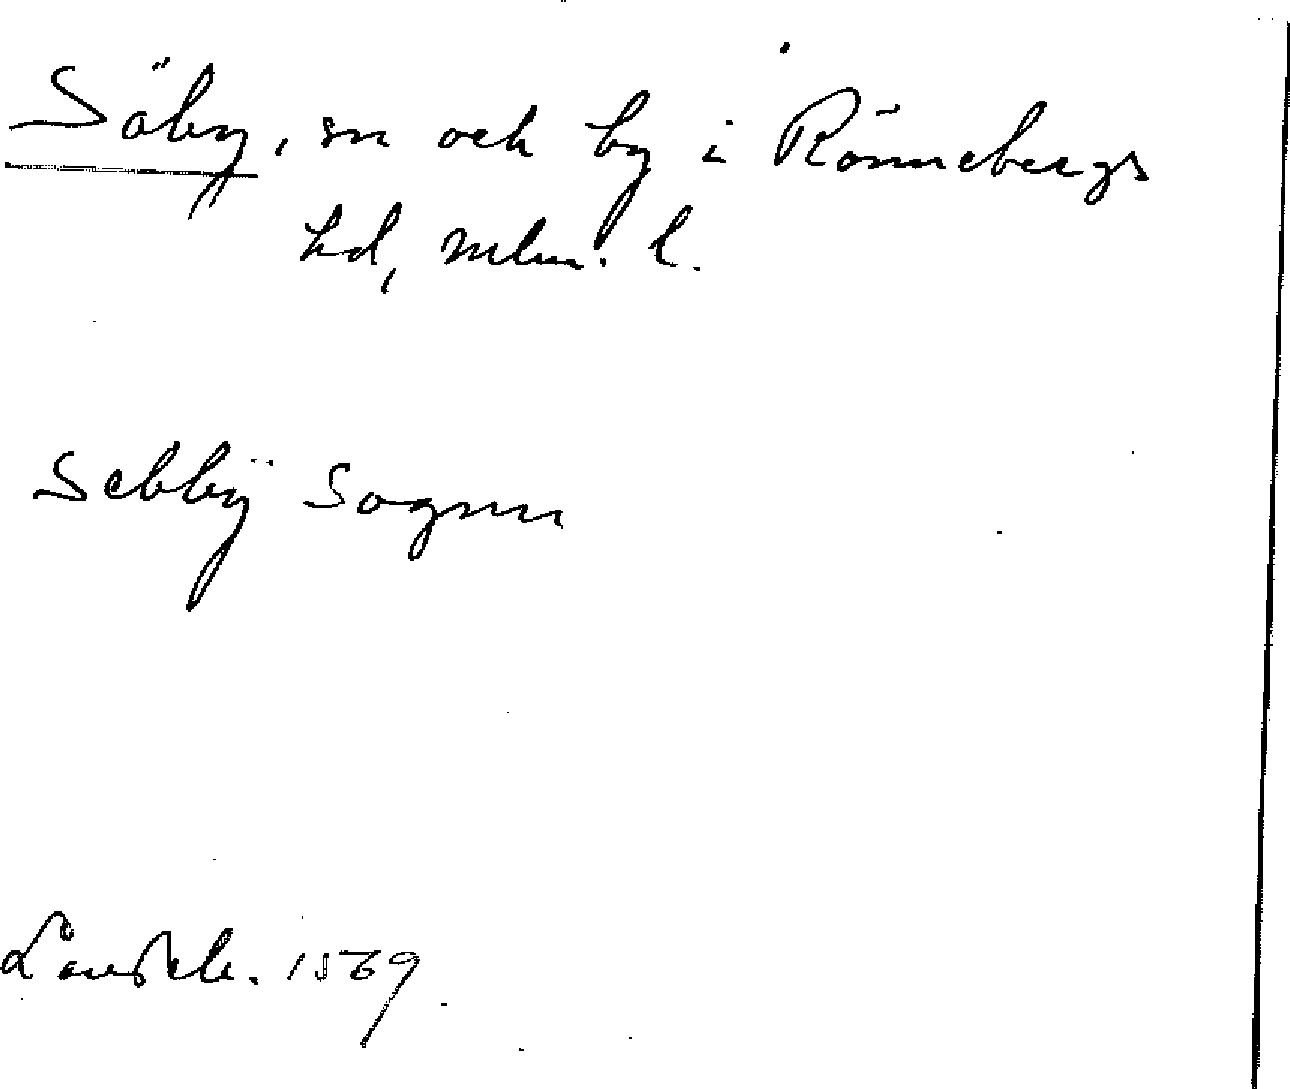 Säby, sn och by i Rönnebergs
hd, mlm. l.
Sebbÿ Sognn
Landsk. 1569